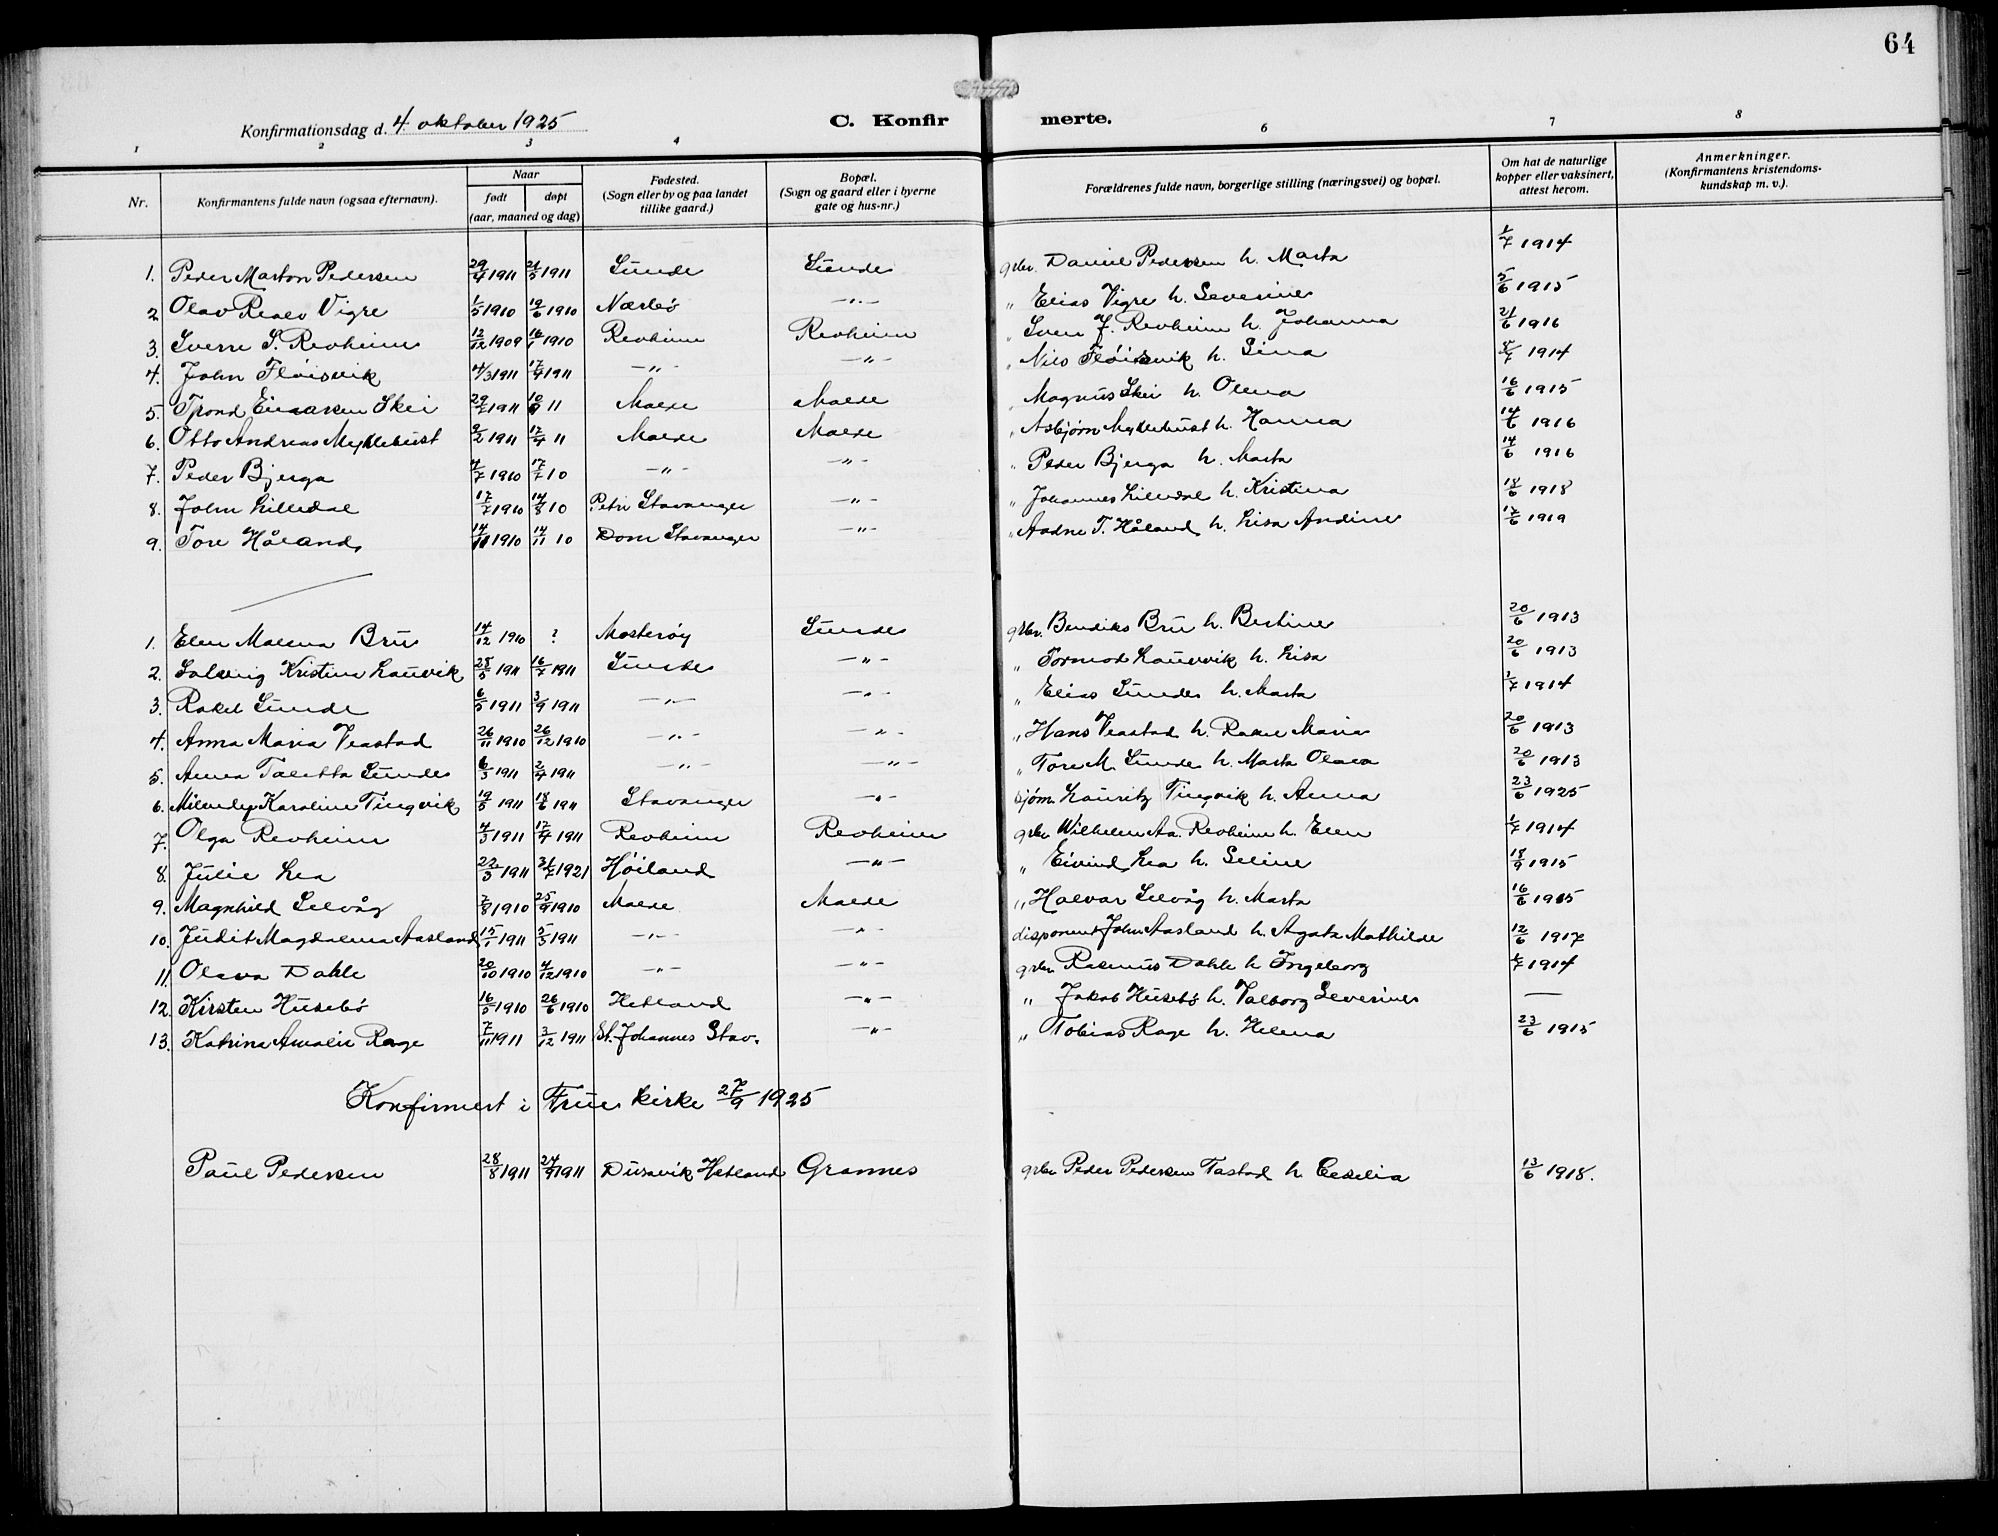 64
Konfirmationsdag d. 4 oktober 1925
C. Konfirmerte.
1 2 3 4 6 7 8
Nr. Konfirmantens fulde navn (ogsaa efternavn). Naar født døpt (aar, maaned og dag) Fødested. (Sogn eller by og paa landet tillike gaard.) Bopæl. (Sogn og gaard eller i byerne gate og hus-nr.) Forældrenes fulde navn, borgerlige stilling (næringsvei) og bopæl. Om hat de naturlige kopper eller vaksinert, attest herom. Anmerkninger. (Konfirmantens kristendomskundskap m. v.).
1. Peder Marton Pedersen 29/4 1911 21/5 1911 Sunde Sunde grbr. Daniel Pedersen h. Marta 1/7 1914
2 Olav Vigre 1/5 1910 19/6 1910 Nærbø -"- " Elias Vigre h. Severine 5/6 1915
3. Sverre S. Revheim 12/12 1909 16/1 1910 Revheim Revheim " Sven J. Revheim h. Johanna 21/6 1916
4. John Fløisvik 4/3 1911 17/4 1911 -"- -"- " Nils Fløisvik h. Sina 1914
5. Trond Einarsen Skei 29/7 1911 10/9 11 Malde Malde " Magnus Skei h. Olena 16/6 1915
6. Otto Andreas Myklebust 9/2 1911 17/4 11 Malde Malde " Asbjørn Myklebust h. Hanna 14/6 1916
7. Peder Bjerga 4/7 1910 17/7 10 -"- -"- " Peder Bjerga h. Marta 14/6 1916
8. John Lilledal 17/7 1910 14/8 10 Petri Stavanger -"- " Johannes Lilledal h. Kristina 18/6 1918
9. Tore Håland 14/10 1910 14/11 10 Dom Stavanger -"- " Aadne T. Håland h. Lisa Andine 17/6 1919
1. Elen Malena Bru 14/12 1910 ? Mosterøy Sunde grbr. Bendiks Bru h. Bertine 20/6 1913
2. Solveig Kristine Lauvik 28/5 1911 16/7 1911 Sunde -"- " Tormod Lauvvik h. Lisa 20/6 1913
3. Rakel Sunde 6/5 1911 3/9 1911 -"- -"- " Elias Sunde h. Marta 1/7 1914
4. Anna Maria Veastad 26/11 1910 26/12 1910 -"- -"- " Hans Veastad h. Rakel Maria 20/6 1913
5. Anna Taletta Sunde 6/3 1911 2/4 1911 -"- -"- " Tore M. Sunde h. Marta Olava 20/6 1913
6. Karoline Tingvik 19/5 1911 18/6 1911 Stavanger -"- sjøm. Lauritz Tingvik h. Anna 23/6 1925
7. Olga Revheim 4/3 1911 17/4 1911 Revheim Revheim grbr Wilhelm Aa. Revheim h. Elen 1/7 1914
8. Julie Lea 22/3 1911 31/7 1921 Høiland -"- " Eivind Lea h. Seline 18/9 1915
9. Magnhild Selvåg 7/8 1910 25/9 1910 Malde Malde " Halvar Selvåg h. Marta 16/6 1915
10. Judit Magdalena Aasland 15/1 1911 5/3 1911 -"- -"- disponent John Aasland h. Agata Mathilde 12/6 1917
11. Olava Dahle 20/10 1910 4/12 1910 -"- -"- grbr Rasmus Dahle h Ingeborg 1/7 1914
12. Kirsten Husebø 16/5 1910 26/6 1910 Hetland -"- " Jakob Husebø h. Valborg Severine —
13. Katrine Amalie Rage 7/11 1911 3/12 1911 St. Johannes Stav. -"- " Tobias Rage h. Helena 23/6 1915
Konfirmert i Frue kirke 27/9 1925
Paul Pedersen 28/8 1911 24/9 1911 Dusavik Hetland Grannes grbr Peder Pedersen Tastad h Cecilia 13/6 1918.